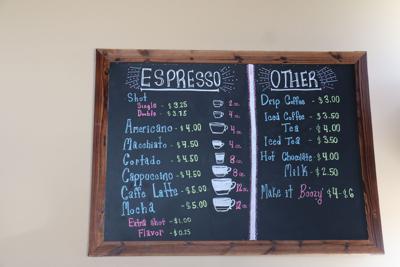 ESPRESSO
Shot
Single - $3.25 2 oz.
Double - $3.75 4 oz.
Americano - $4.00
Macchiato - $4.50 4 oz.
Cortado - $4.50 8 oz.
Cappuccino - $4.50 8 oz.
Caffè Latte - $5.00 12 oz.
Mocha - $5.00 12 oz.
Extra shot - $1.00
Flavor - $0.75
OTHER
Drip Coffee - $3.00
Iced Coffee - $3.50
Tea - $4.00
Iced Tea - $3.50
Hot Chocolate - $4.00
Milk - $2.50
Make it Boozy $4-$6